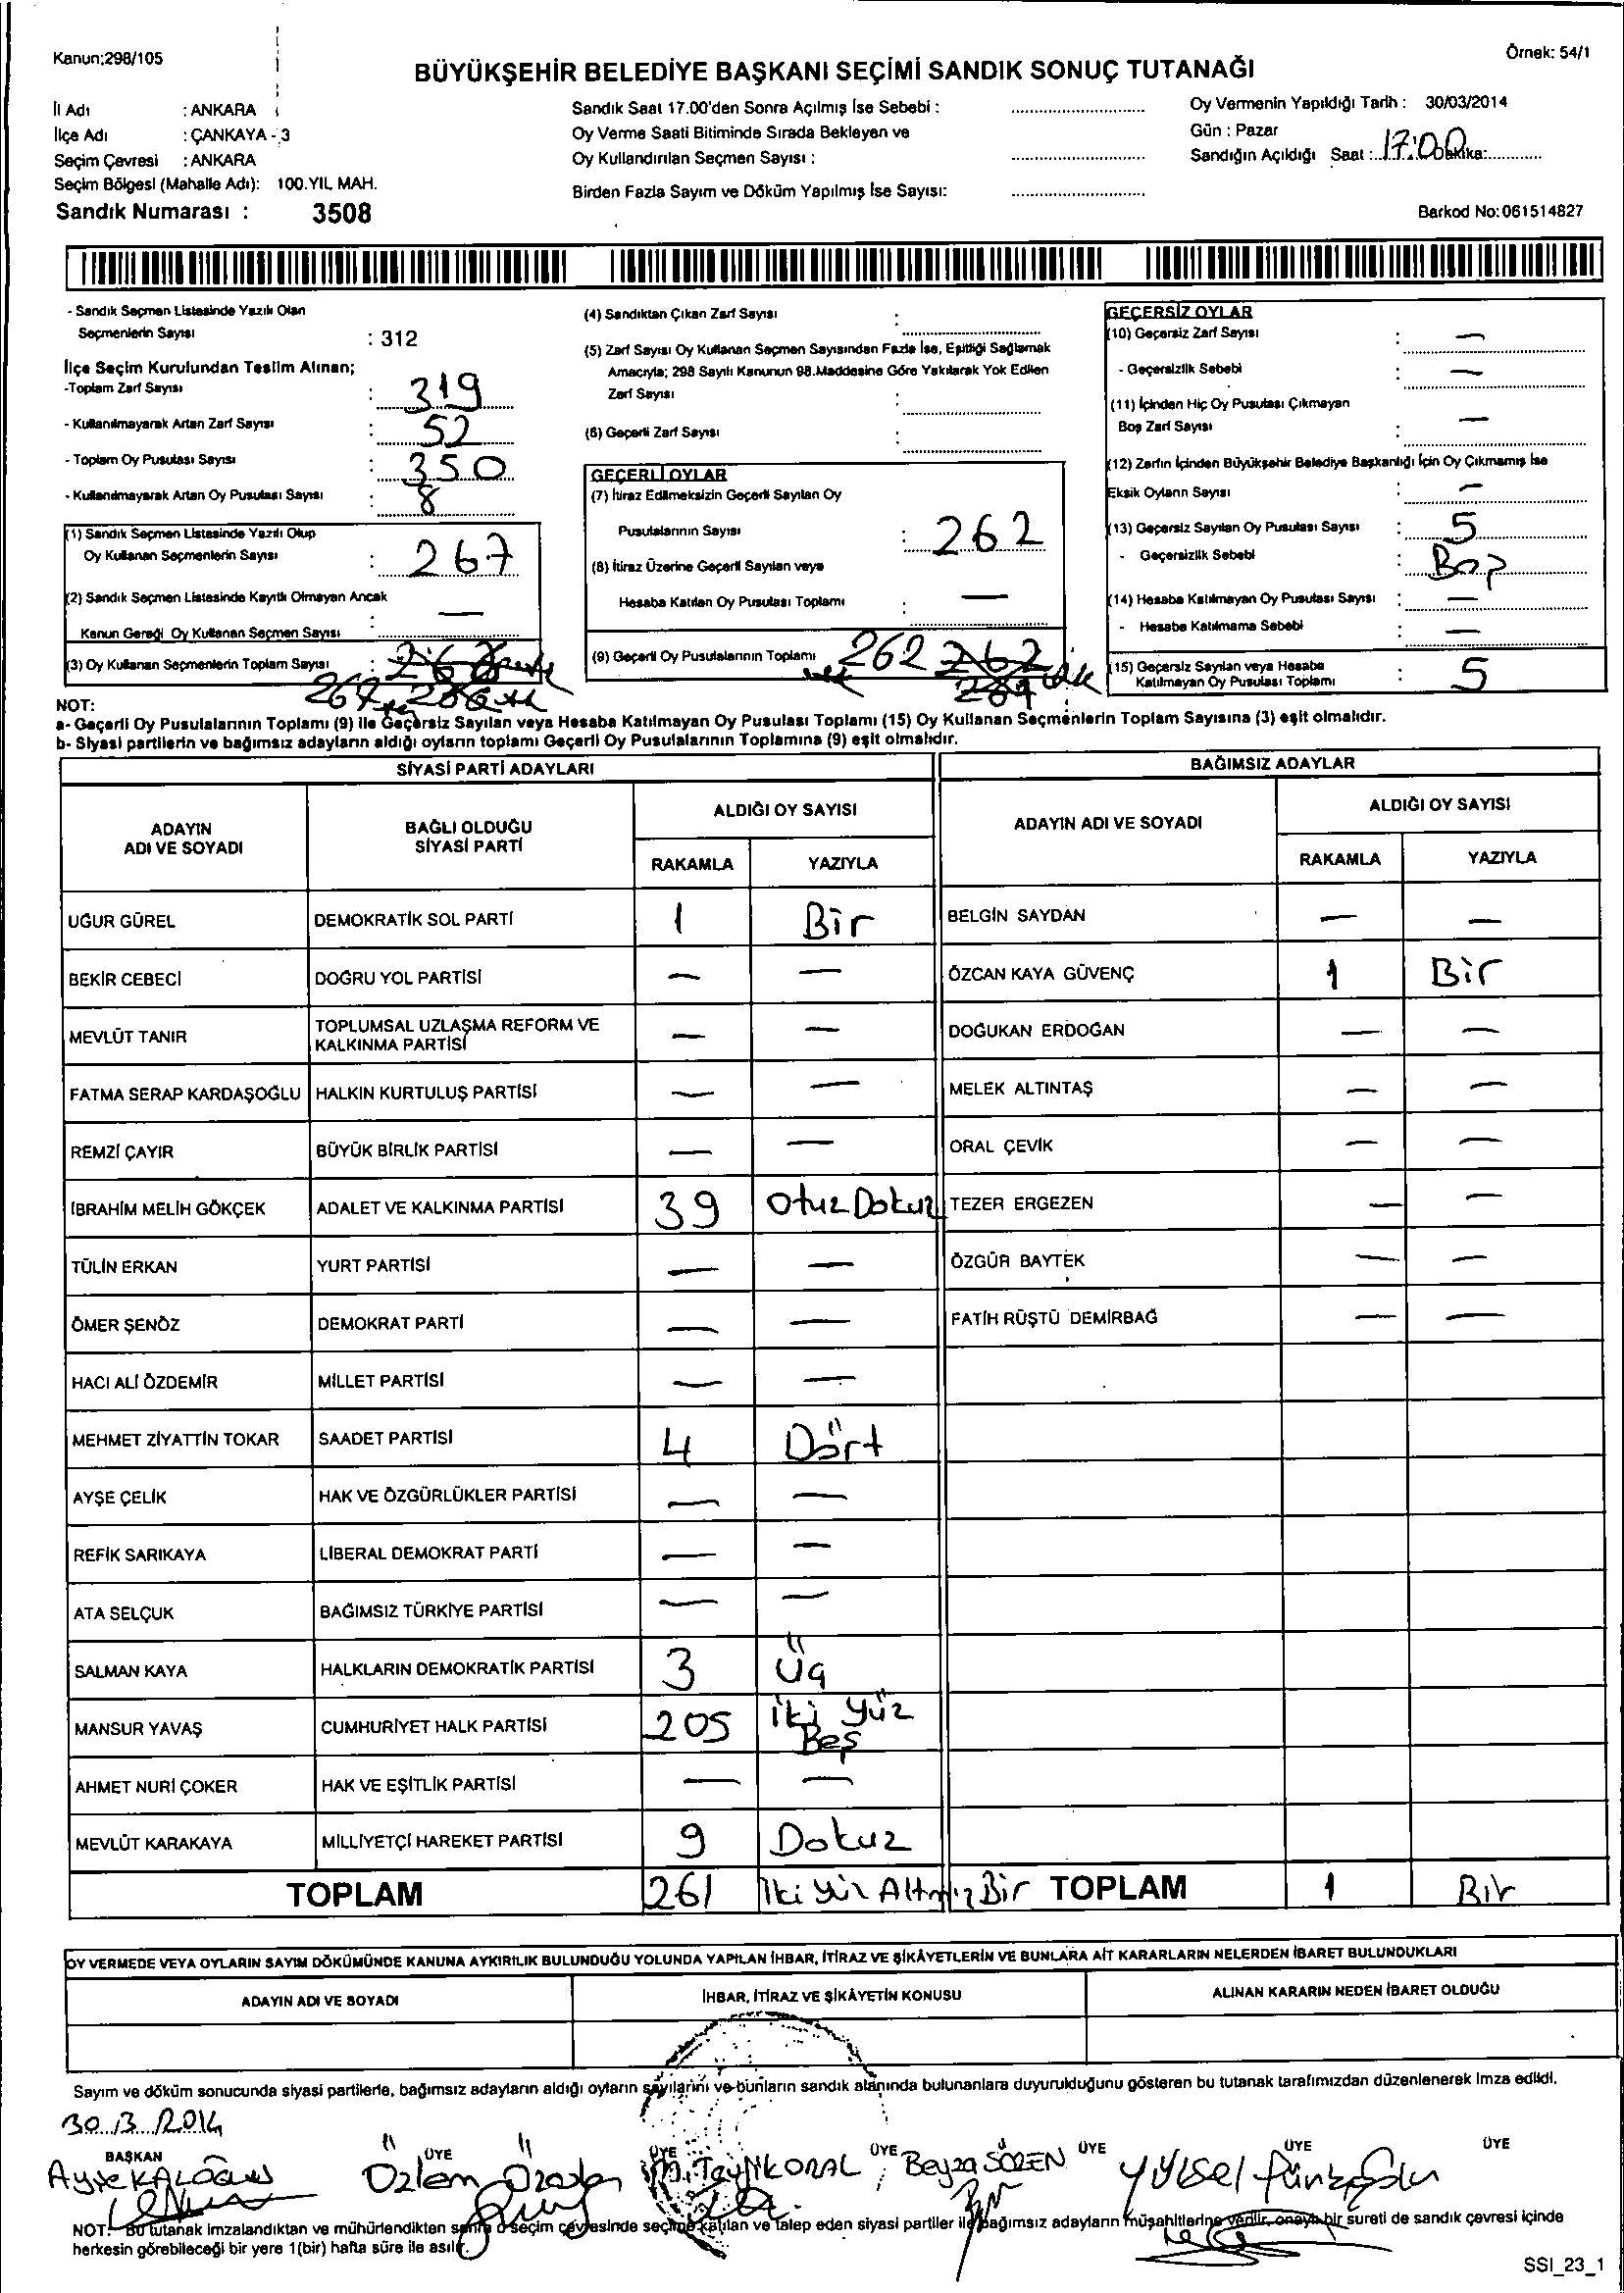 Kanun:298/105
Örnek: 54/1
BÜYÜKŞEHİR BELEDİYE BAŞKANI SEÇİMİ SANDIK SONUÇ TUTANAĞI
İl Adı : ANKARA
İlçe Adı : ÇANKAYA - 3
Seçim Çevresi : ANKARA
Seçim Bölgesi (Mahalle Adı): 100.YIL MAH.
Sandık Numarası : 3508
Sandık Saat 17.00'den Sonra Açılmış İse Sebebi :
Oy Verme Saati Bitiminde Sırada Bekleyen ve
Oy Kullandırılan Seçmen Sayısı :
Birden Fazla Sayım ve Döküm Yapılmış İse Sayısı:
Oy Vermenin Yapıldığı Tarih : 30/03/2014
Gün : Pazar
Sandığın Açıldığı Saat : 17:00 Dakika:
Barkod No:061514827
- Sandık Seçmen Listesinde Yazılı Olan
Seçmenlerin Sayısı : 312
İlçe Seçim Kurulundan Teslim Alınan;
-Toplam Zarf Sayısı : 319
- Kullanılmayarak Artan Zarf Sayısı : 52
- Toplam Oy Pusulası Sayısı : 350
- Kullanılmayarak Artan Oy Pusulası Sayısı : 8
(1) Sandık Seçmen Listesinde Yazılı Olup
Oy Kullanan Seçmenlerin Sayısı : 267
(2) Sandık Seçmen Listesinde Kayıtlı Olmayan Ancak
Kanun Gereği Oy Kullanan Seçmen Sayısı : —
(3) Oy Kullanan Seçmenlerin Toplam Sayısı :
267
(4) Sandıktan Çıkan Zarf Sayısı :
(5) Zarf Sayısı Oy Kullanan Seçmen Sayısından Fazla İse, Eşitliği Sağlamak
Amacıyla; 298 Sayılı Kanunun 98.Maddesine Göre Yakılarak Yok Edilen
Zarf Sayısı :
(6) Geçerli Zarf Sayısı :
GEÇERLİ OYLAR
(7) İtiraz Edilmeksizin Geçerli Sayılan Oy
Pusulalarının Sayısı : 262
(8) İtiraz Üzerine Geçerli Sayılan veya
Hesaba Katılan Oy Pusulası Toplamı : —
(9) Geçerli Oy Pusulalarının Toplamı 262 262
GEÇERSİZ OYLAR
(10) Geçersiz Zarf Sayısı : —
- Geçersizlik Sebebi : —
(11) İçinden Hiç Oy Pusulası Çıkmayan
Boş Zarf Sayısı : —
(12) Zarfın İçinden Büyükşehir Belediye Başkanlığı İçin Oy Çıkmamış İse
Eksik Oyların Sayısı : —
(13) Geçersiz Sayılan Oy Pusulası Sayısı : 5
- Geçersizlik Sebebi : Boş
(14) Hesaba Katılmayan Oy Pusulası Sayısı : —
- Hesaba Katılmama Sebebi : —
(15) Geçersiz Sayılan veya Hesaba
Katılmayan Oy Pusulası Toplamı : 5
NOT:
a- Geçerli Oy Pusulalarının Toplamı (9) ile Geçersiz Sayılan veya Hesaba Katılmayan Oy Pusulası Toplamı (15) Oy Kullanan Seçmenlerin Toplam Sayısına (3) eşit olmalıdır.
b- Siyasi partilerin ve bağımsız adayların aldığı oyların toplamı Geçerli Oy Pusulalarının Toplamına (9) eşit olmalıdır.
SİYASİ PARTİ ADAYLARI
BAĞIMSIZ ADAYLAR
ADAYIN ADI VE SOYADI
BAĞLI OLDUĞU SİYASİ PARTİ
ALDIĞI OY SAYISI
RAKAMLA YAZIYLA
ADAYIN ADI VE SOYADI
ALDIĞI OY SAYISI
RAKAMLA YAZIYLA
UĞUR GÜREL DEMOKRATİK SOL PARTİ 1 Bir BELGİN SAYDAN — —
BEKİR CEBECİ DOĞRU YOL PARTİSİ — — ÖZCAN KAYA GÜVENÇ 1 Bir
MEVLÜT TANIR TOPLUMSAL UZLAŞMA REFORM VE KALKINMA PARTİSİ — — DOĞUKAN ERDOĞAN — —
FATMA SERAP KARDAŞOĞLU HALKIN KURTULUŞ PARTİSİ — — MELEK ALTINTAŞ — —
REMZİ ÇAYIR BÜYÜK BİRLİK PARTİSİ — — ORAL ÇEVİK — —
İBRAHİM MELİH GÖKÇEK ADALET VE KALKINMA PARTİSİ 39 Otuz Dokuz TEZER ERGEZEN — —
TÜLİN ERKAN YURT PARTİSİ — — ÖZGÜR BAYTEK — —
ÖMER ŞENÖZ DEMOKRAT PARTİ — — FATİH RÜŞTÜ DEMİRBAĞ — —
HACI ALİ ÖZDEMİR MİLLET PARTİSİ — —
MEHMET ZİYATTİN TOKAR SAADET PARTİSİ 4 Dört
AYŞE ÇELİK HAK VE ÖZGÜRLÜKLER PARTİSİ — —
REFİK SARIKAYA LİBERAL DEMOKRAT PARTİ — —
ATA SELÇUK BAĞIMSIZ TÜRKİYE PARTİSİ — —
SALMAN KAYA HALKLARIN DEMOKRATİK PARTİSİ 3 Üç
MANSUR YAVAŞ CUMHURİYET HALK PARTİSİ 205 İki Yüz Beş
AHMET NURİ ÇOKER HAK VE EŞİTLİK PARTİSİ — —
MEVLÜT KARAKAYA MİLLİYETÇİ HAREKET PARTİSİ 9 Dokuz
TOPLAM 261 İki Yüz Altmış Bir TOPLAM 1 Bir
OY VERMEDE VEYA OYLARIN SAYIM DÖKÜMÜNDE KANUNA AYKIRILIK BULUNDUĞU YOLUNDA YAPILAN İHBAR, İTİRAZ VE ŞİKÂYETLERİN VE BUNLARA AİT KARARLARIN NELERDEN İBARET BULUNDUKLARI
ADAYIN ADI VE SOYADI İHBAR, İTİRAZ VE ŞİKÂYETİN KONUSU ALINAN KARARIN NEDEN İBARET OLDUĞU
Sayım ve döküm sonucunda siyasi partilerle, bağımsız adayların aldığı oyların sayılarını ve bunların sandık alanında bulunanlara duyurulduğunu gösteren bu tutanak tarafımızdan düzenlenerek imza edildi.
30.3.2014
BAŞKAN ÜYE ÜYE ÜYE ÜYE ÜYE ÜYE
Özlem M. Tevfik ORAL Beyza SÖZEN Yüksel
NOT: Bu tutanak imzalandıktan ve mühürlendikten sonra o seçim çevresinde seçime katılan ve talep eden siyasi partiler ile bağımsız adayların müşahitlerine verilir, onaylı bir sureti de sandık çevresi içinde
herkesin görebileceği bir yere 1(bir) hafta süre ile asılır.
SSI_23_1